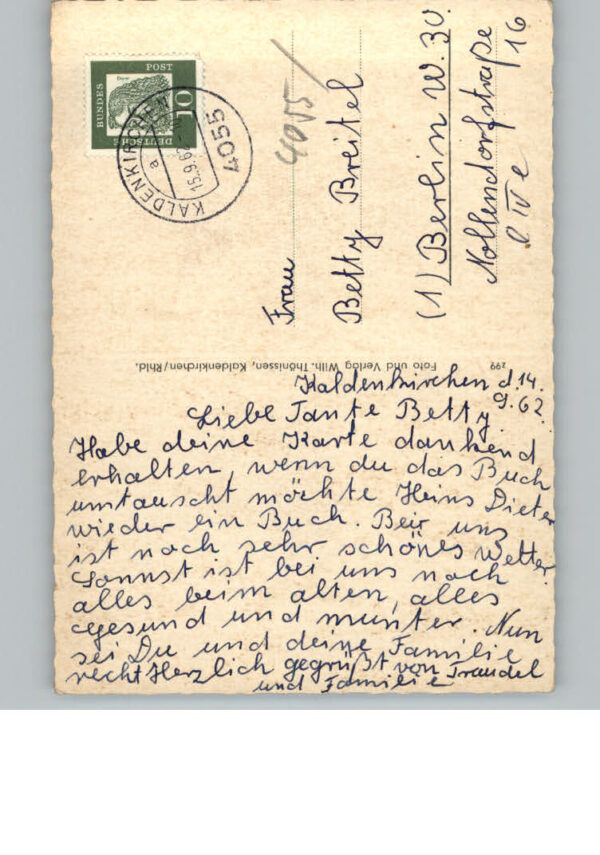 DEUTSCHE
BUNDES
POST
10
Dürer
KALDENKIRCHEN
a
15.9.62
4055
4055
Frau
Betty Breitel
(1) Berlin W. 30.
Nollendorfstraße 16
IV e
299
Foto und Verlag Wilh. Thönissen, Kaldenkirchen/Rhld.
Kaldenkirchen d. 14.
9. 62.
Liebe Tante Betty.
Habe deine Karte dankend
erhalten, wenn du das Buch
umtauscht möchte Heins Dieter
wieder ein Buch. Beir uns
ist noch sehr schönes Wetter.
Sonnst ist bei uns noch
alles beim alten, alles
gesund und munter. Nun
sei Du und deine Familie
recht Herzlich gegrüßt von Traudel
und Familie